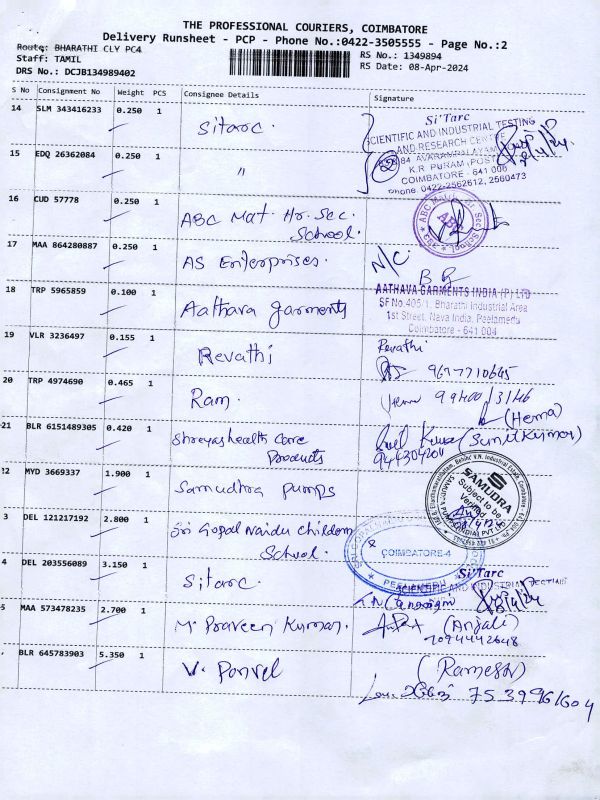 THE PROFESSIONAL COURIERS, COIMBATORE
Delivery Runsheet - PCP - Phone No.:0422-3505555 - Page No.:2
Route: BHARATHI CLY PC4
Staff: TAMIL
DRS No.: DCJB134989402
RS No.: 1349894
RS Date: 08-Apr-2024
S No Consignment No Weight PCS Consignee Details Signature
14 SLM 343416233 0.250 1 Sitarc.
Si'Tarc
SCIENTIFIC AND INDUSTRIAL TESTING
AND RESEARCH CENTRE
84 AVARAMPALAYAM
K.R. PURAM (POST)
COIMBATORE - 641 006
phone. 0422-2562612, 2560473
15 EDQ 26362084 0.250 1 "
2
16 CUD 57778 0.250 1 ABC Mat. Hr. Sec. School.
ABC
17 MAA 864280887 0.250 1 AS Enterprises.
N/C
18 TRP 5965859 0.100 1 Aathava garments
AATHAVA GARMENTS INDIA (P) LTD
SF No.405/1, Bharathi Industrial Area
1st Street, Nava India, Peelamedu
Coimbatore - 641 004
19 VLR 3236497 0.155 1 Revathi
Revathi
9677710645
20 TRP 4974690 0.465 1 Ram.
Hema
(Hema)
21 BLR 6151489305 0.420 1 Shreyas health Care Products
(Sunil Kumar)
22 MYD 3669337 1.900 1 Samudhra pumps
SAMUDRA
Subject to be
Verified
3 DEL 121217192 2.800 1 Sri Gopal Naidu Childern School.
COIMBATORE-4
PEELAMEDU
4 DEL 203556089 3.150 1 Sitarc.
Si'Tarc
SCIENTIFIC AND INDUSTRIAL TESTING
5 MAA 573478235 2.700 1 M. Praveen Kumar.
(Anjali)
7094442648
BLR 645783903 5.350 1 V. Ponvel
(Ramesh)
7539961604